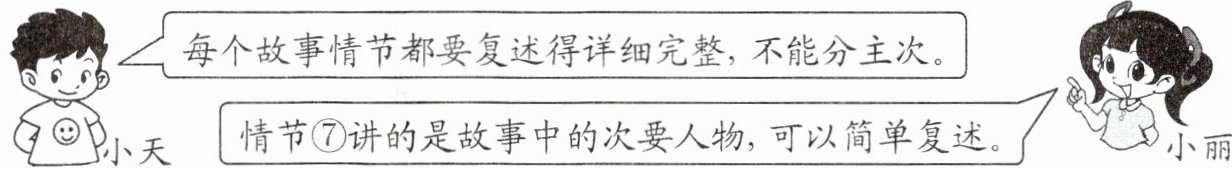 每个故事情节都要复述得详细完整，不能分主次。
小天
情节⑦讲的是故事中的次要人物，可以简单复述。
小丽